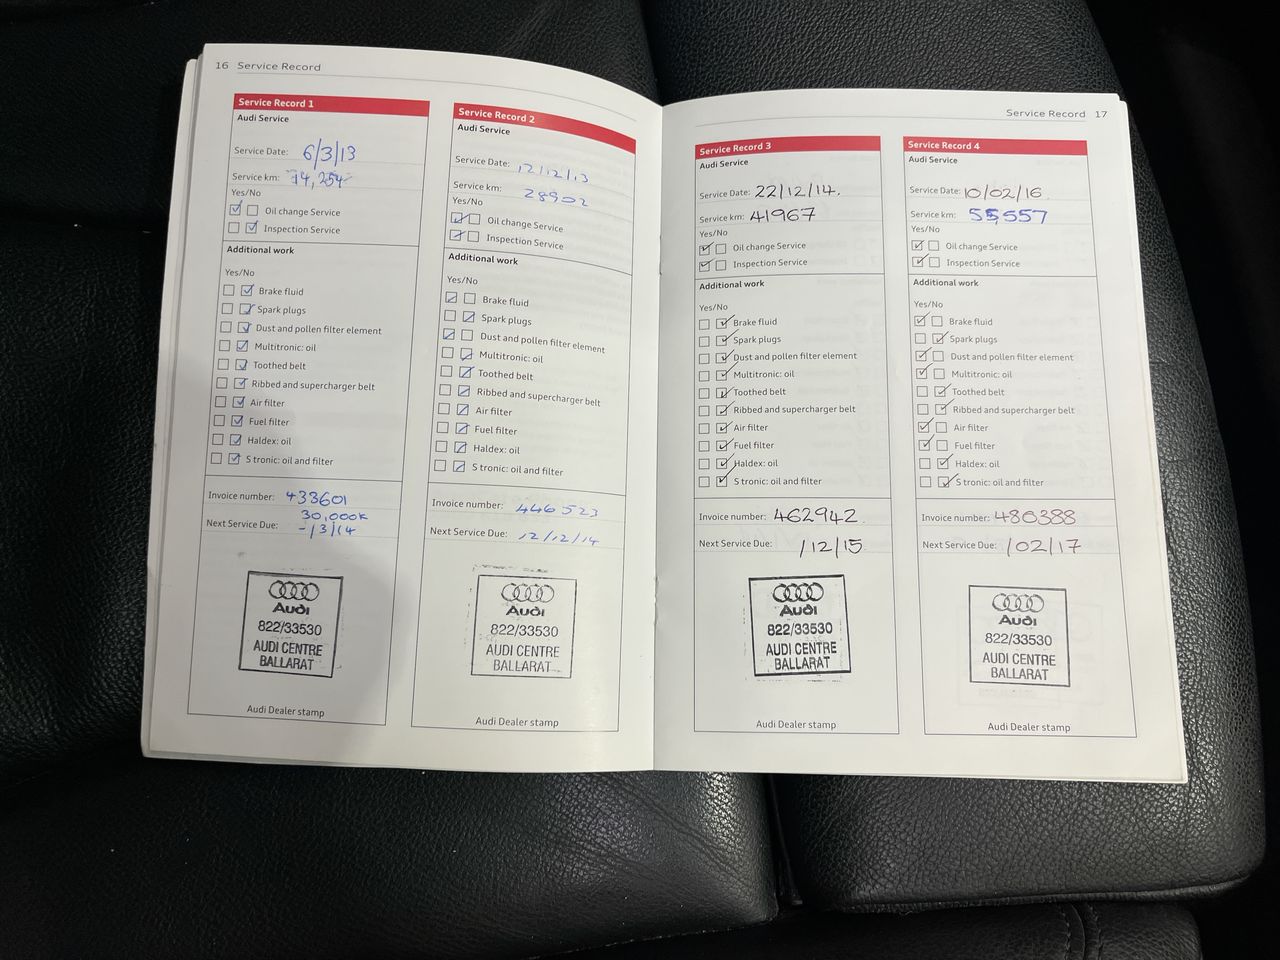 16 Service Record
Service Record 1
Audi Service
Service Date: 6/3/13
Service km: 14,254
Yes/No
Oil change Service
Inspection Service
Additional work
Yes/No
Brake fluid
Spark plugs
Dust and pollen filter element
Multitronic: oil
Toothed belt
Ribbed and supercharger belt
Air filter
Fuel filter
Haldex: oil
S tronic: oil and filter
Invoice number: 433601
30,000k
Next Service Due: -/3/14
Audi
822/33530
AUDI CENTRE
BALLARAT
Audi Dealer stamp
Service Record 2
Audi Service
Service Date: 12/12/13
Service km: 28902
Yes/No
Oil change Service
Inspection Service
Additional work
Yes/No
Brake fluid
Spark plugs
Dust and pollen filter element
Multitronic: oil
Toothed belt
Ribbed and supercharger belt
Air filter
Fuel filter
Haldex: oil
S tronic: oil and filter
Invoice number: 446523
Next Service Due: 12/12/14
Audi
822/33530
AUDI CENTRE
BALLARAT
Audi Dealer stamp
Service Record 17
Service Record 3
Audi Service
Service Date: 22/12/14.
Service km: 41967
Yes/No
Oil change Service
Inspection Service
Additional work
Yes/No
Brake fluid
Spark plugs
Dust and pollen filter element
Multitronic: oil
Toothed belt
Ribbed and supercharger belt
Air filter
Fuel filter
Haldex: oil
S tronic: oil and filter
Invoice number: 462942
Next Service Due: /12/15
Audi
822/33530
AUDI CENTRE
BALLARAT
Audi Dealer stamp
Service Record 4
Audi Service
Service Date: 10/02/16
Service km: 55,557
Yes/No
Oil change Service
Inspection Service
Additional work
Yes/No
Brake fluid
Spark plugs
Dust and pollen filter element
Multitronic: oil
Toothed belt
Ribbed and supercharger belt
Air filter
Fuel filter
Haldex: oil
S tronic: oil and filter
Invoice number: 480388
Next Service Due: /02/17
Audi
822/33530
AUDI CENTRE
BALLARAT
Audi Dealer stamp